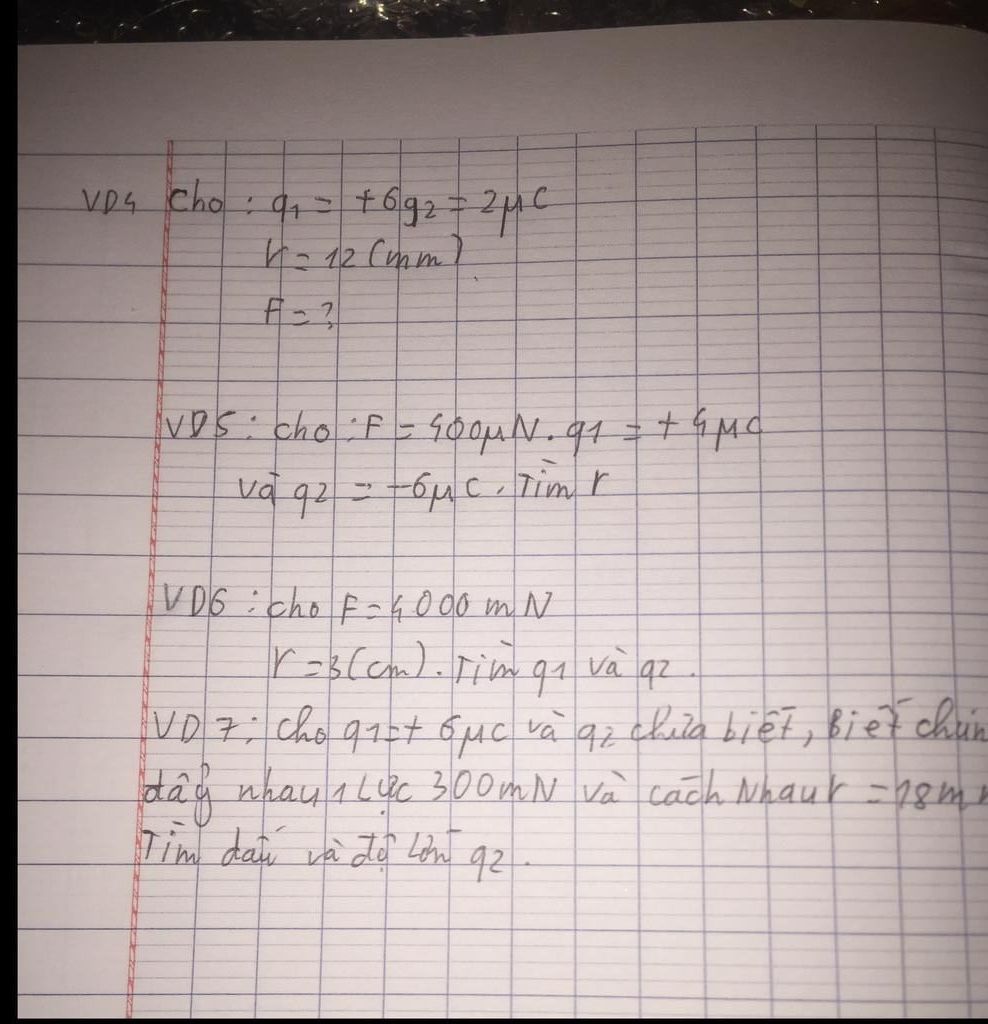 VD4 Cho : q1 = +6q2 = 2μC
r = 12 (mm)
F = ?
VD5 : cho : F = 400μN. q1 = +4μC
và q2 = -6μC. Tìm r
VD6 : cho F = 4000mN
r = 3(cm). Tìm q1 và q2.
VD7 : cho q1 = + 6μc và q2 chưa biết, Biết chún
đẩy nhau 1 Lực 300mN và cách Nhau r = 18m
Tìm dấu và độ Lớn q2.